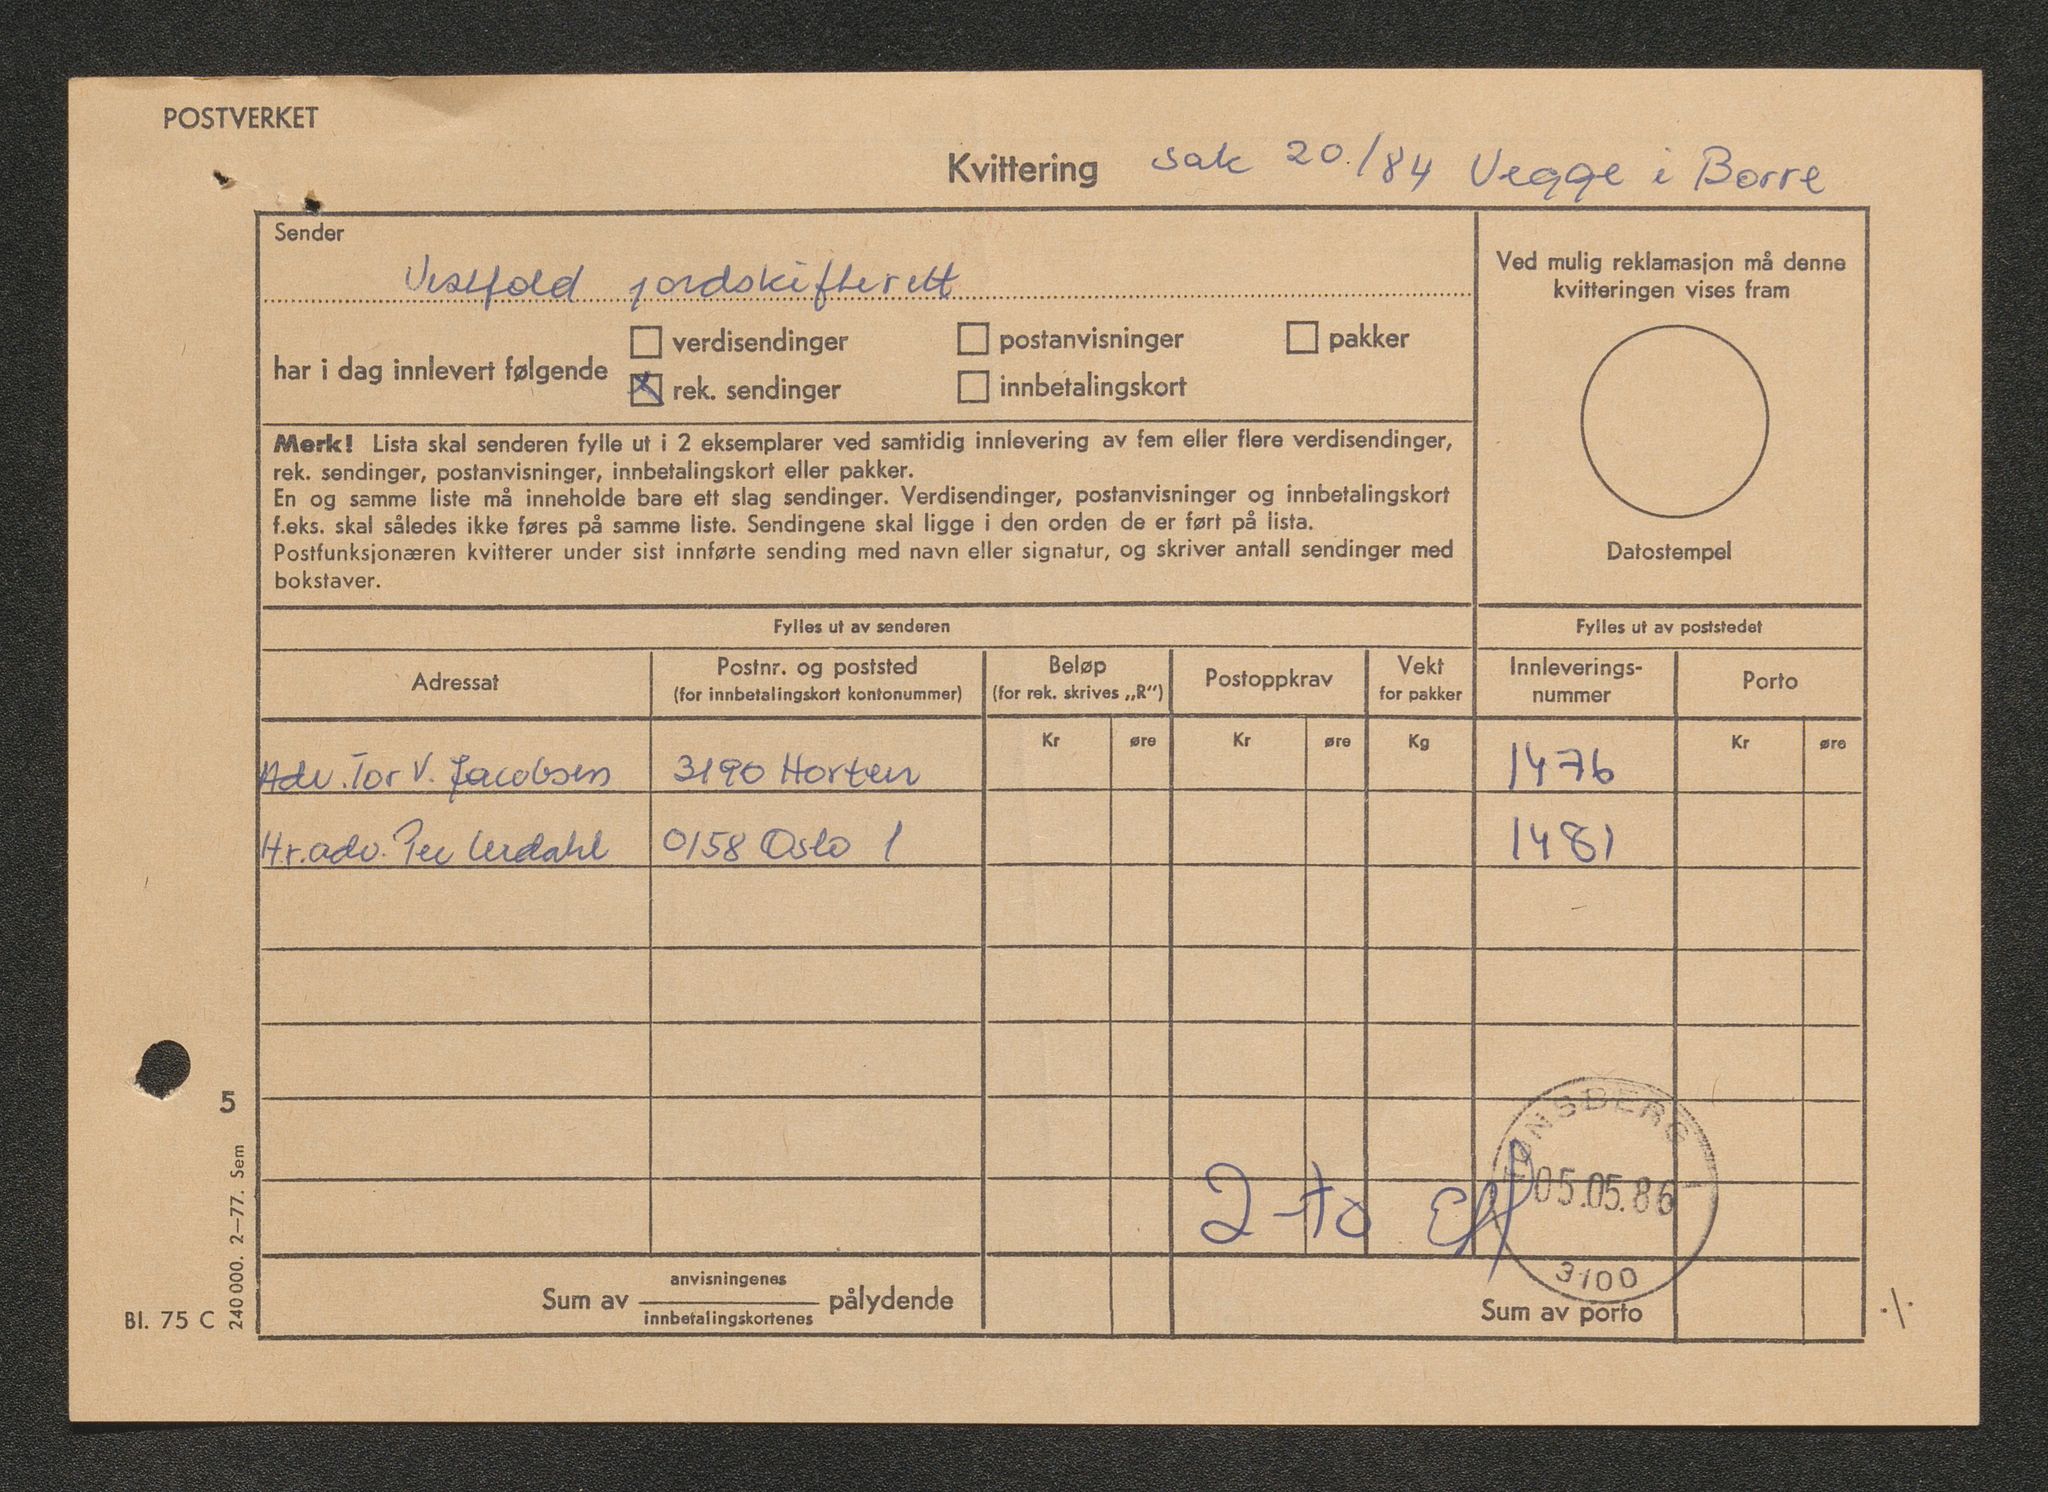 POSTVERKET
Kvittering sak 20/84 Vegge i Borre
Sender
Vestfold jordskifterett
har i dag innlevert følgende
verdisendinger
postanvisninger
pakker
rek. sendinger
innbetalingskort
Merk! Lista skal senderen fylle ut i 2 eksemplarer ved samtidig innlevering av fem eller flere verdisendinger,
rek. sendinger, postanvisninger, innbetalingskort eller pakker.
En og samme liste må inneholde bare ett slag sendinger. Verdisendinger, postanvisninger og innbetalingskort
f.eks. skal således ikke føres på samme liste. Sendingene skal ligge i den orden de er ført på lista.
Postfunksjonæren kvitterer under sist innførte sending med navn eller signatur, og skriver antall sendinger med
bokstaver.
Ved mulig reklamasjon må denne
kvitteringen vises fram
Datostempel
Fylles ut av senderen
Fylles ut av poststedet
Adressat
Postnr. og poststed
(for innbetalingskort kontonummer)
Beløp
(for rek. skrives „R")
Postoppkrav
Vekt
for pakker
Innleverings-
nummer
Porto
Kr øre Kr øre Kg Kr øre
Adv. Tor V. Jacobsen 3190 Horten 1476
H.r.adv. Per 0158 Oslo 1 1481
2 -to
TØNSBERG
05.05.86
3100
Sum av anvisningenes / innbetalingskortenes pålydende
Sum av porto
./.
5
240 000. 2–77. Sem
Bl. 75 C